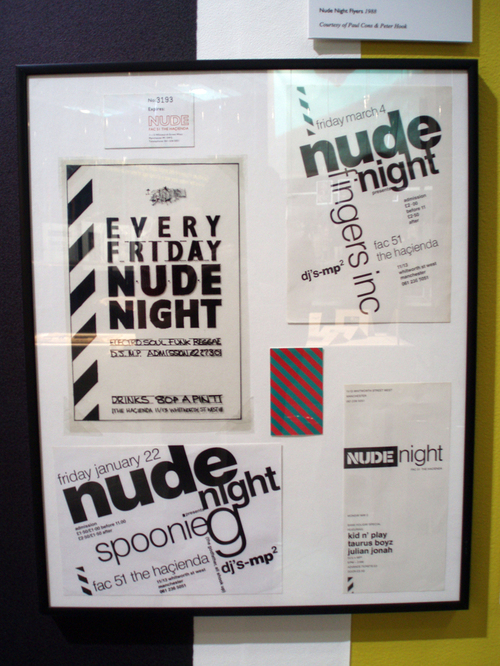 Nude Night Flyers 1988
Courtesy of Paul Cons & Peter Hook
No 3193
Expires
NUDE
FAC 51 THE HAÇIENDA
friday march 4
nude
night
presents
fingers inc
admission
before 11
after
fac 51
the haçienda
dj's-mp²
11/13
whitworth st west
manchester
061 236 5051
EVERY
FRIDAY
NUDE
NIGHT
ELECTRO SOUL FUNK REGGAE
D.J. M.P. ADMISSION
DRINKS 80P A PINT!
THE HAÇIENDA 11/13 WHITWORTH ST WEST
NUDE night
kid n' play
taurus boyz
julian jonah
friday january 22
nude
night
admission
before 11:00
after
presents
spoonie g
dj's-mp²
fac 51 the haçienda
11/13 whitworth st west
manchester
061 236 5051